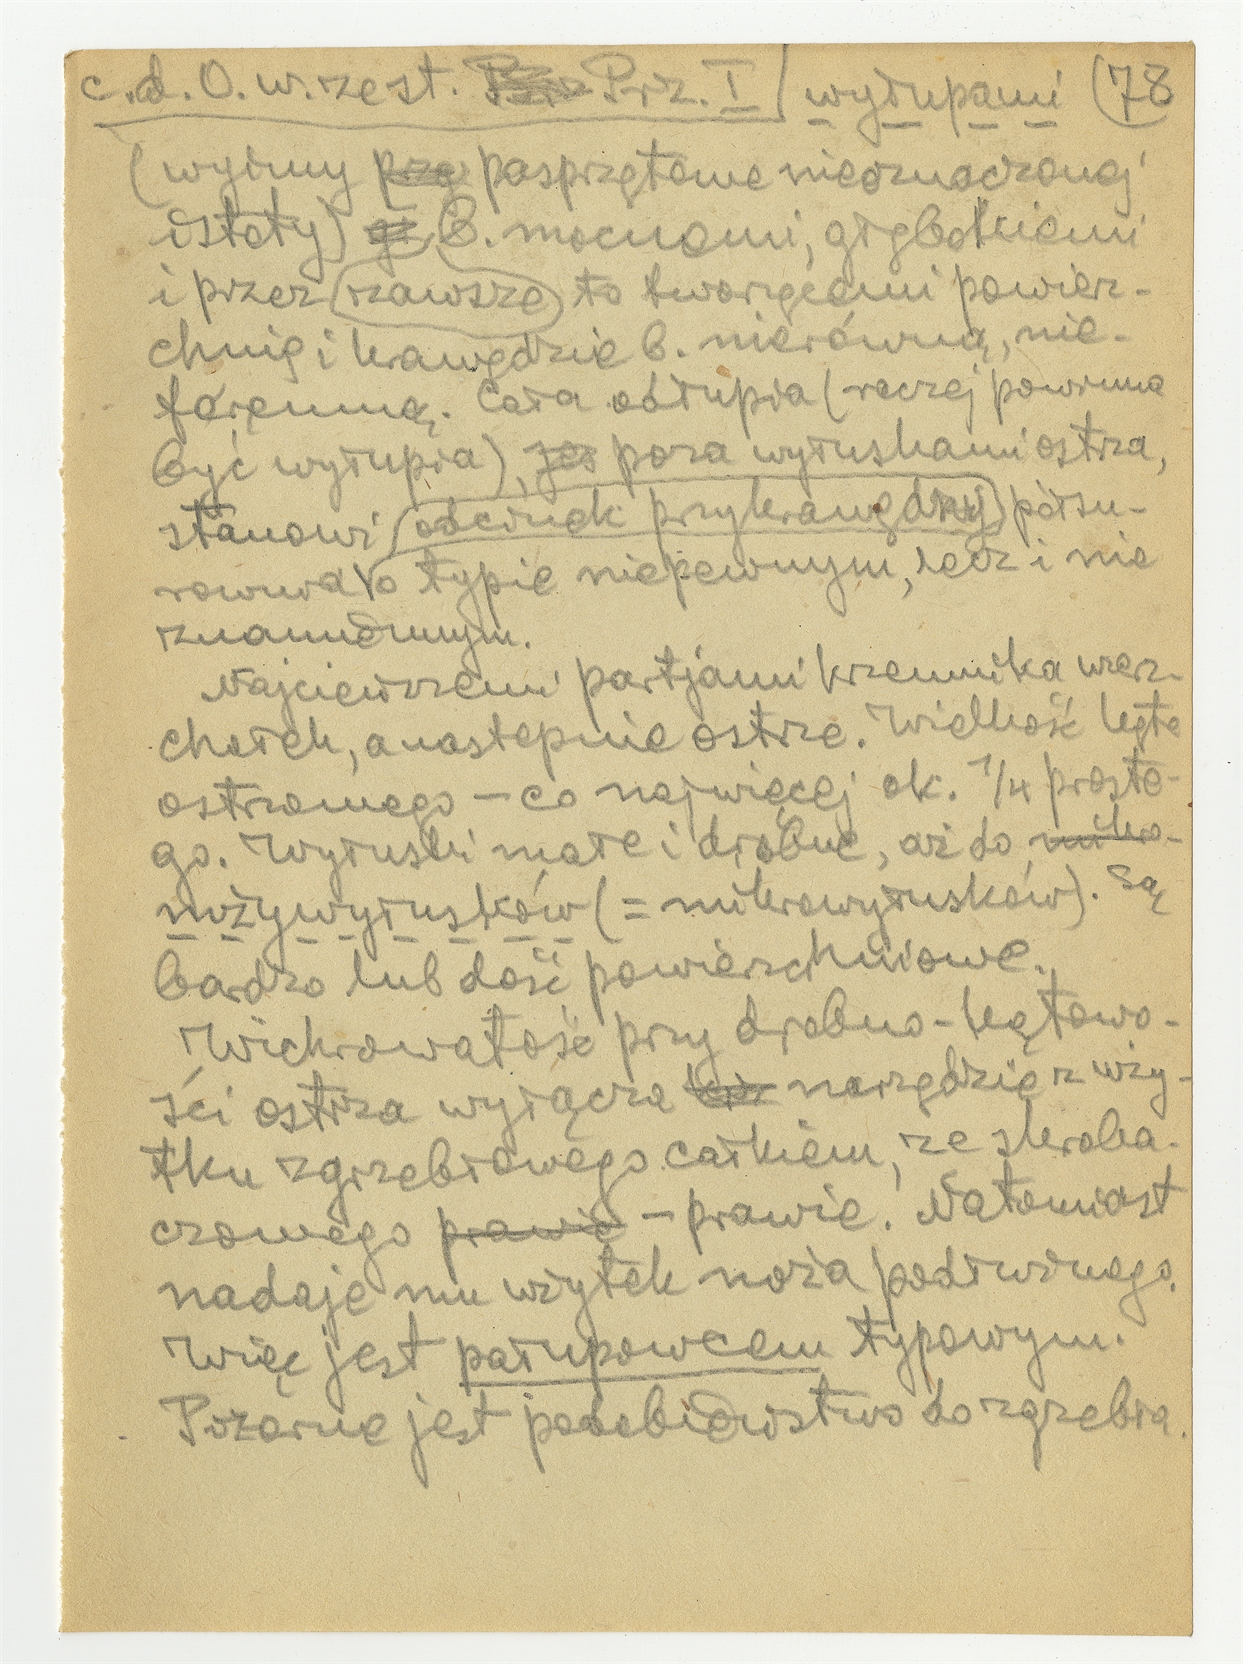 c.d. O. w. zest. Prz. I wyłupami (78
(wyimy pasprzętowe nieoznaczonej
istoty) B. mocnemi, głębokiemi
i przez zawsze to tworzącemi powierz-
chnię i krawędzie b. nierówną, nie-
foremną. Cała obłupia (raczej powinna
być wyłupia), poza wyłuskami ostrza,
stanowi odcinek przykrawędny półsu-
rowca o typie niepewnym, lecz i nie
znamiennym.
Najcieńszemi partjami krzemnika wierz-
chołek, a nastepnie ostrze. Wielkość kąta
ostrzowego – co najwięcej ok. 1/4 proste-
go. Wyłuski małe i drobne, aż do mikro-
nożywyłusków (= mikrowyłusków). Są
bardzo lub dość powierzchniowe.
Wichrowatość przy drobno-kątowo-
ści ostrza wyłącza narzędzie z uży-
tku zgrzebłowego całkiem, ze skroba-
czowego prawie – prawie. Natomiast
nadaje mu użytek noża podłużnego.
Więc jest pałupowcem typowym.
Pozorne jest podobieństwo do zgrzebła.